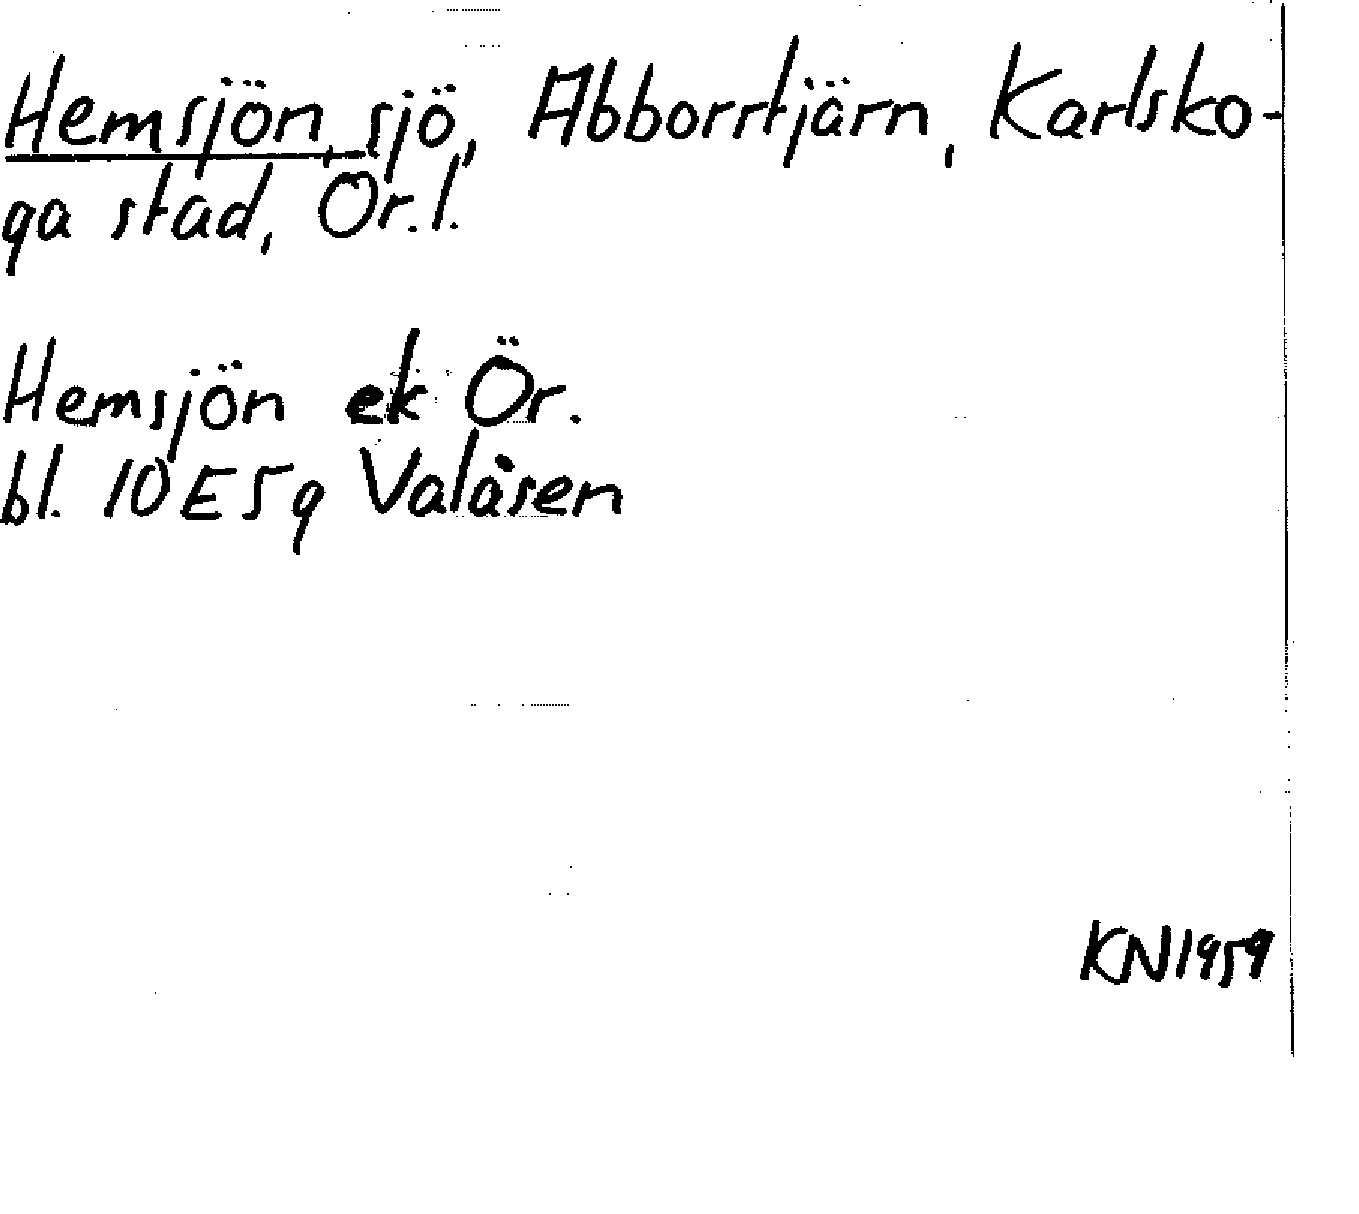 Hemsjön, sjö, Abborrtjärn, Karlsko-
ga stad, Ör.l.
Hemsjön ek Ör.
bl. 10E5g Valåsen
KN1959